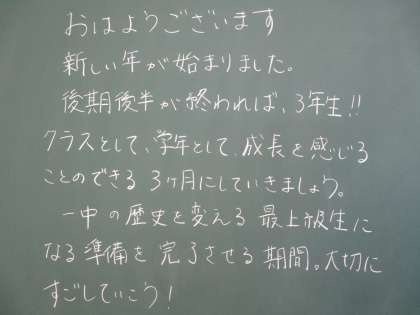 おはようございます
新しい年が始まりました。
後期後半が終われば、3年生!!
クラスとして、学年として、成長を感じる
ことのできる 3ヶ月にしていきましょう。
一中の歴史を変える 最上級生に
なる準備を完了させる期間。大切に
すごしていこう!